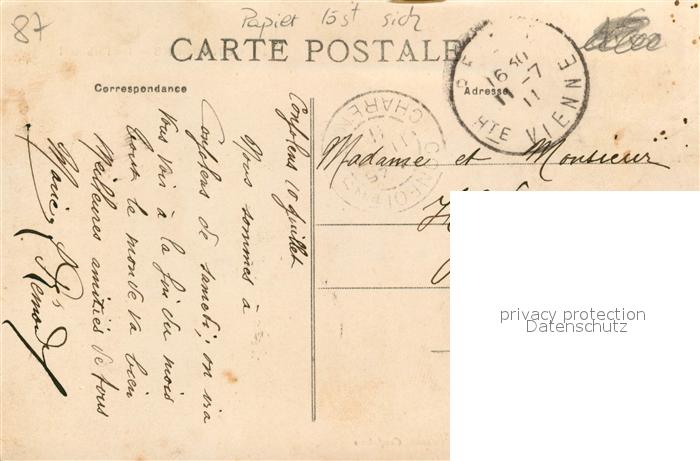 87
Papier löst sich
CARTE POSTALE
Correspondance
Adresse
16 30
11-7
11
HTE VIENNE
CONFOLENS
CHAREN
Madame et Monsieur
Confolens 10 Juillet
Nous sommes à
Confolens de samedi; on ira
Vous voir à la fin du mois
tout le monde va bien
Meilleures amitiés de tous
Marie
privacy protection
Datenschutz